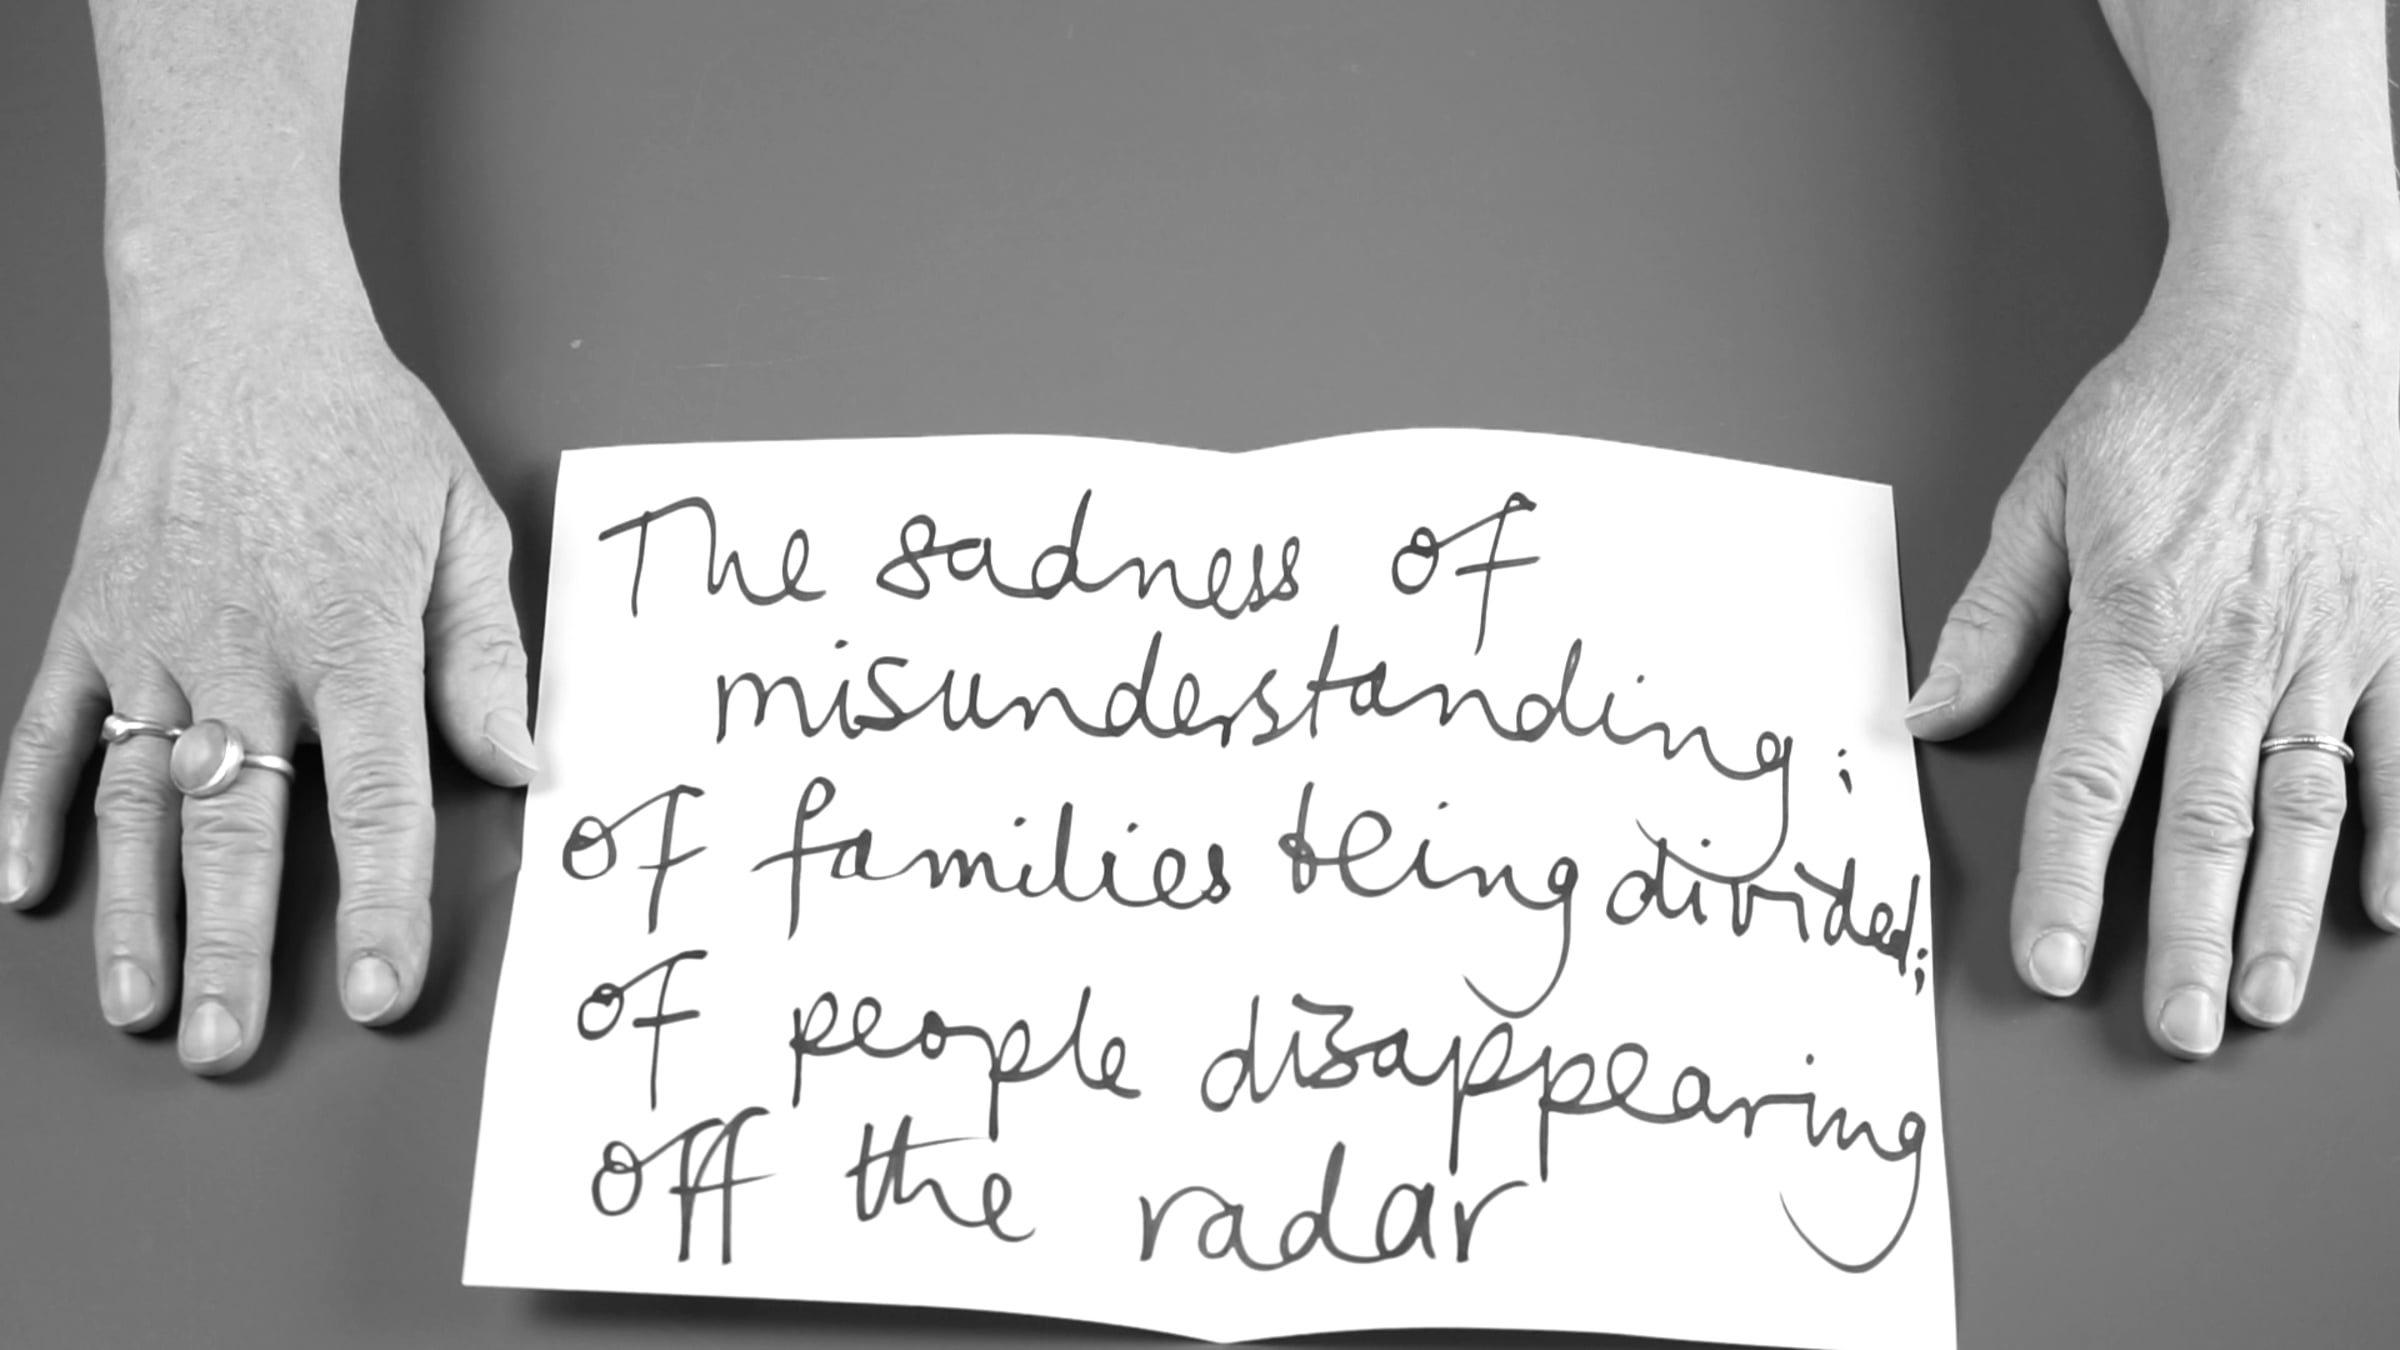 The sadness of
misunderstanding;
of families being divided;
of people disappearing
off the radar